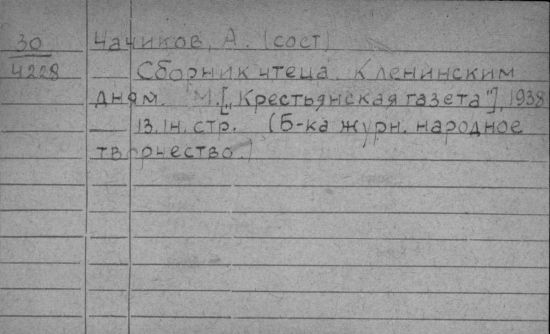 30 Чачиков, А. (сост)
4228 Сборник чтеца. К ленинским
дням. М. [„Крестьянская газета"], 1938
13. 1н. стр. (б-ка журн. народное
творчество.)